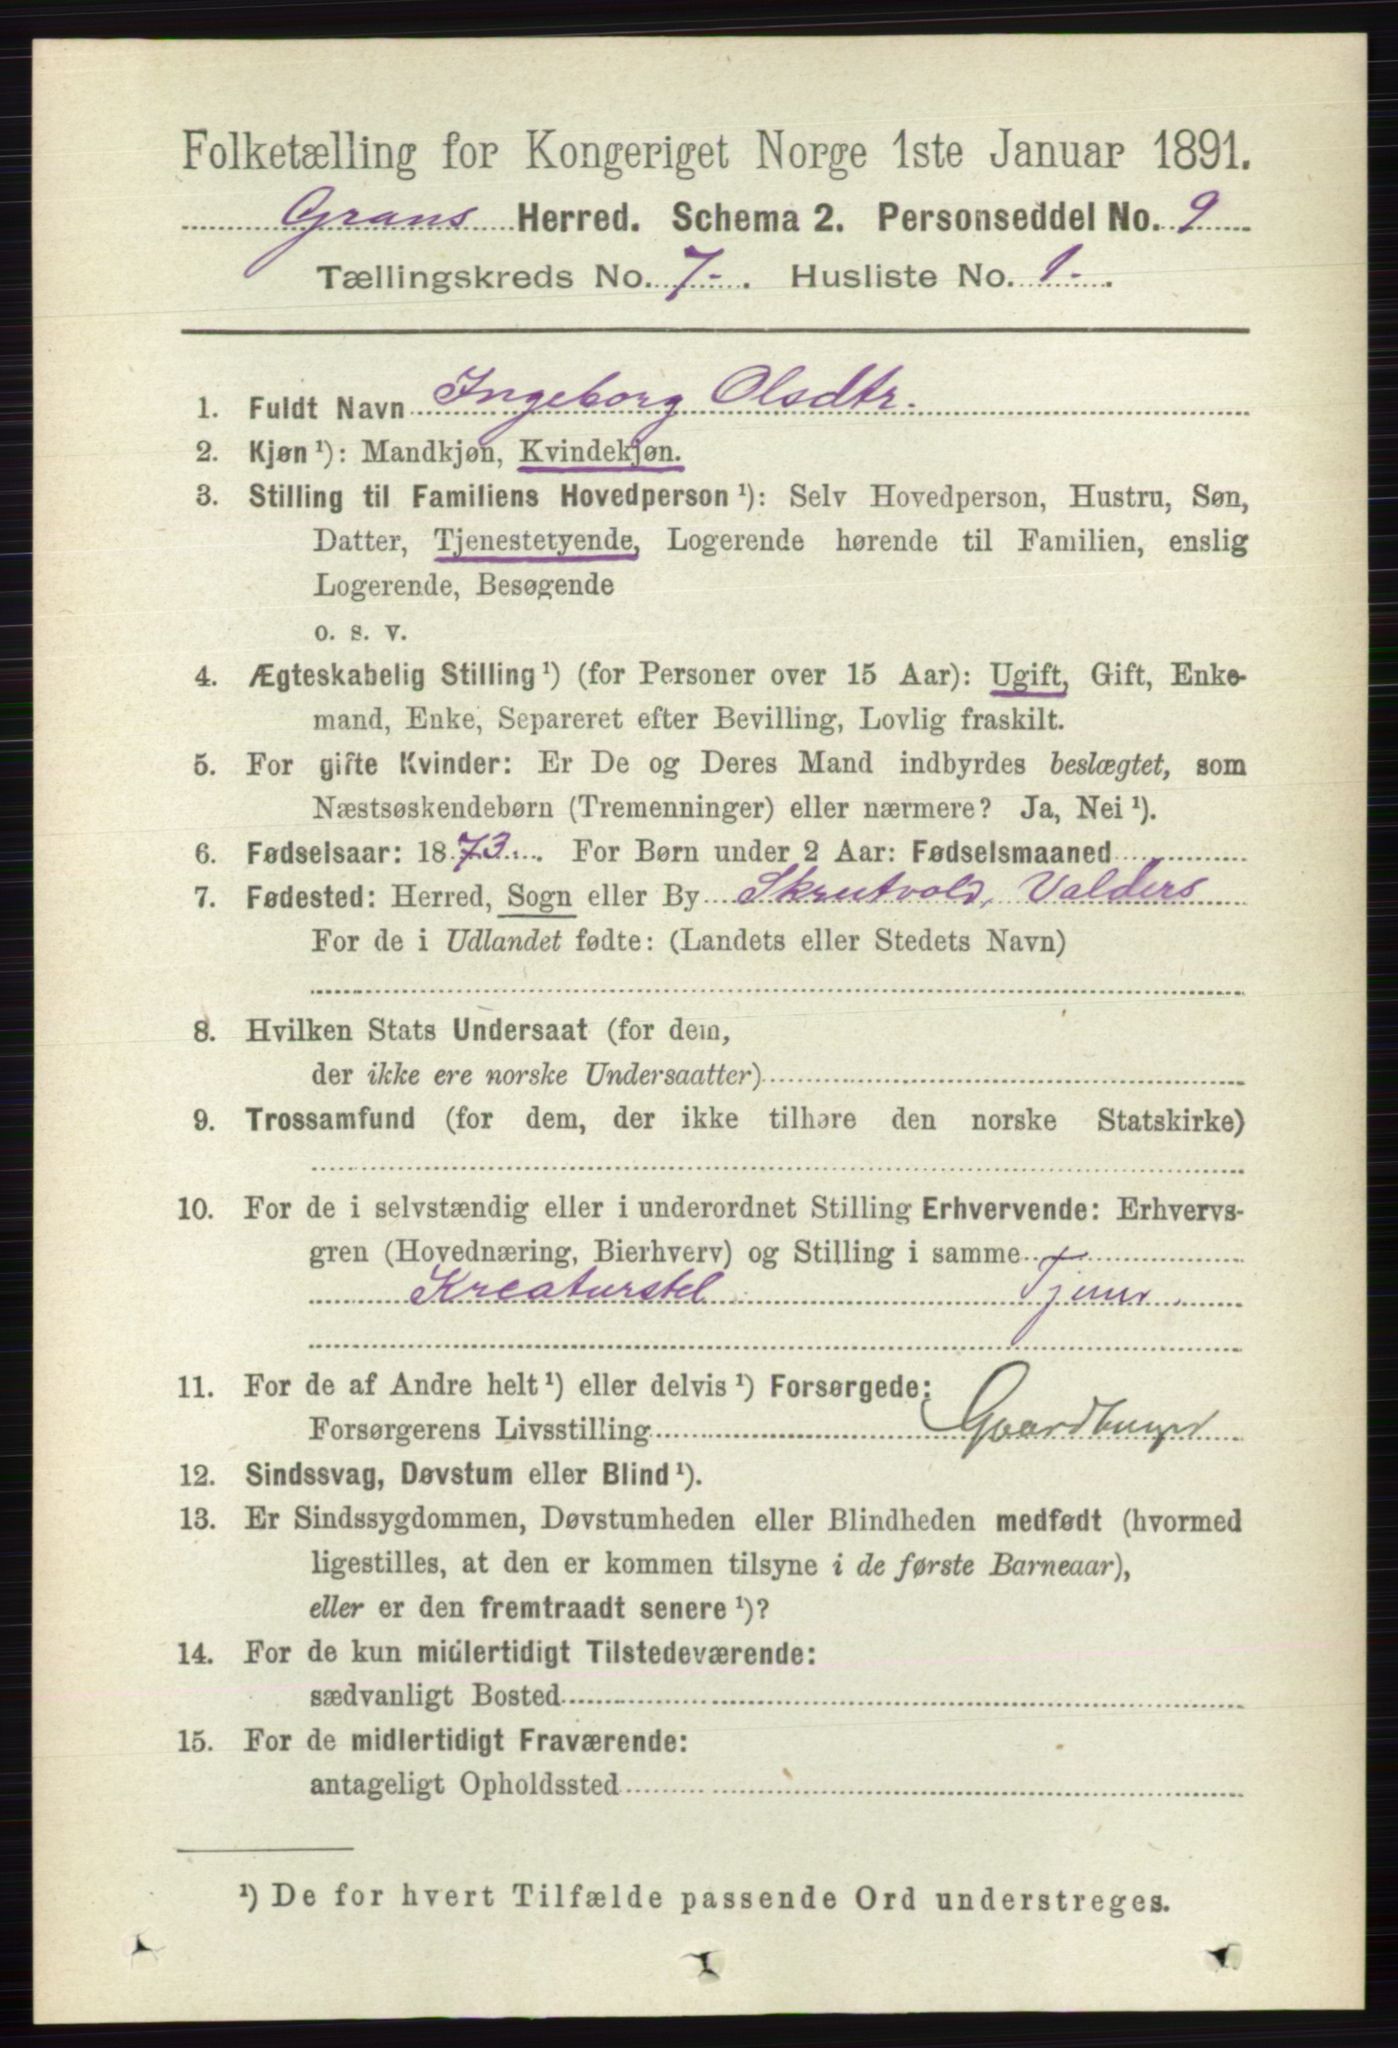 Folketælling for Kongeriget Norge 1ste Januar 1891.
Grans Herred. Schema 2. Personseddel No. 9
Tællingskreds No. 7-. Husliste No. 1-.
1. Fuldt Navn Ingeborg Olsdtr.
2. Kjøn ¹): Mandkjøn, Kvindekjøn.
3. Stilling til Familiens Hovedperson ¹): Selv Hovedperson, Hustru, Søn,
Datter, Tjenestetyende, Logerende hørende til Familien, enslig
Logerende, Besøgende
o. s. v.
4. Ægteskabelig Stilling ¹) (for Personer over 15 Aar): Ugift, Gift, Enke-
mand, Enke, Separeret efter Bevilling, Lovlig fraskilt.
5. For gifte Kvinder: Er De og Deres Mand indbyrdes beslægtet, som
Næstsøskendebørn (Tremenninger) eller nærmere? Ja, Nei ¹).
6. Fødselsaar: 1873. For Børn under 2 Aar: Fødselsmaaned
7. Fødested: Herred, Sogn eller By Skrutvold, Valders
For de i Udlandet fødte: (Landets eller Stedets Navn)
8. Hvilken Stats Undersaat (for dem,
der ikke ere norske Undersaatter)
9. Trossamfund (for dem, der ikke tilhøre den norske Statskirke)
10. For de i selvstændig eller i underordnet Stilling Erhvervende: Erhvervs-
gren (Hovednæring, Bierhverv) og Stilling i samme
Kreaturstel Tjener
11. For de af Andre helt ¹) eller delvis ¹) Forsørgede:
Forsørgerens Livsstilling Gaardbruger
12. Sindssvag, Døvstum eller Blind ¹).
13. Er Sindssygdommen, Døvstumheden eller Blindheden medfødt (hvormed
ligestilles, at den er kommen tilsyne i de første Barneaar),
eller er den fremtraadt senere ¹)?
14. For de kun midlertidigt Tilstedeværende:
sædvanligt Bosted
15. For de midlertidigt Fraværende:
antageligt Opholdssted
¹) De for hvert Tilfælde passende Ord understreges.